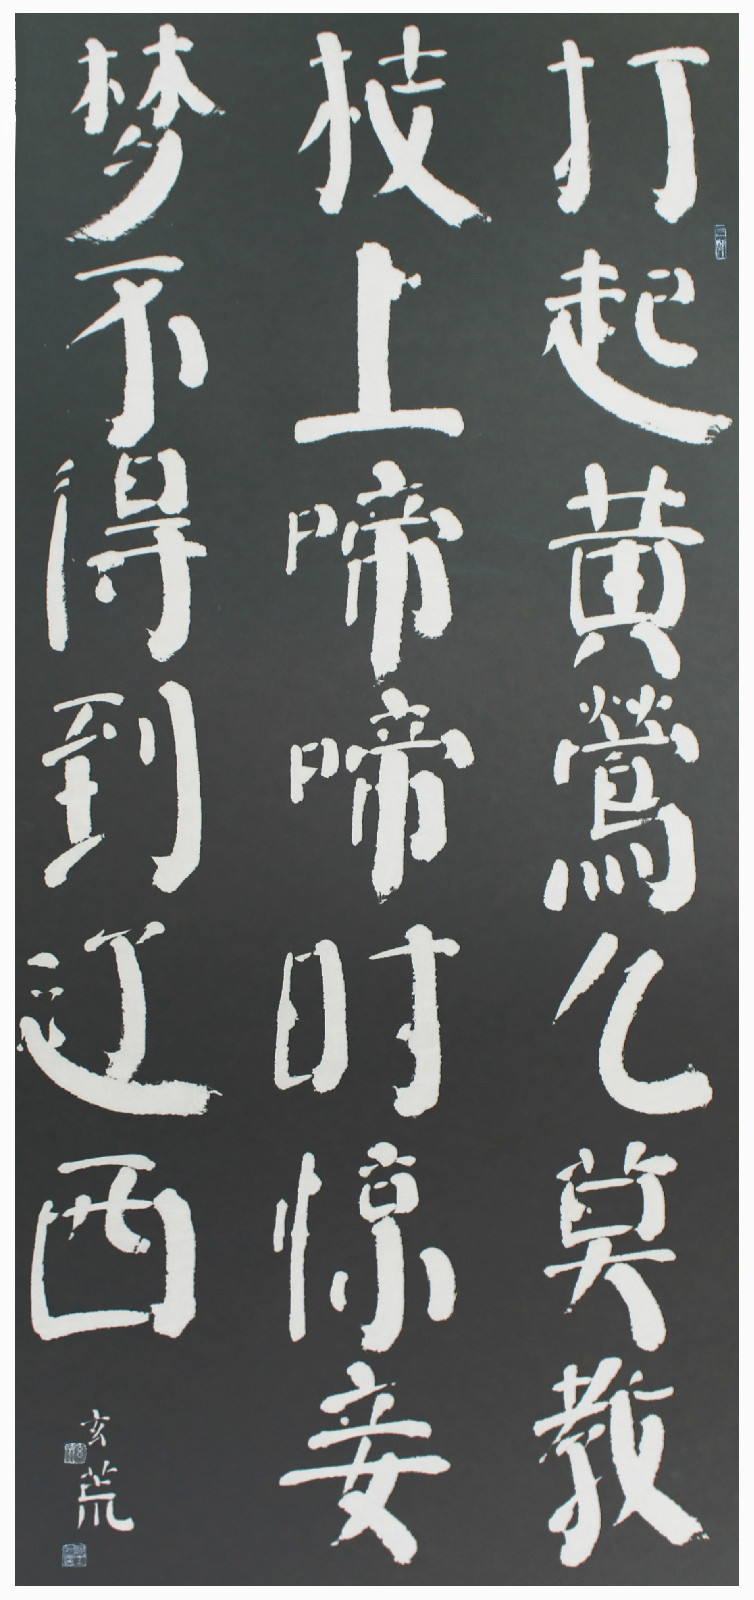 打起黄鶯儿莫教
枝上啼啼时惊妾
梦不得到辽西
玄荒